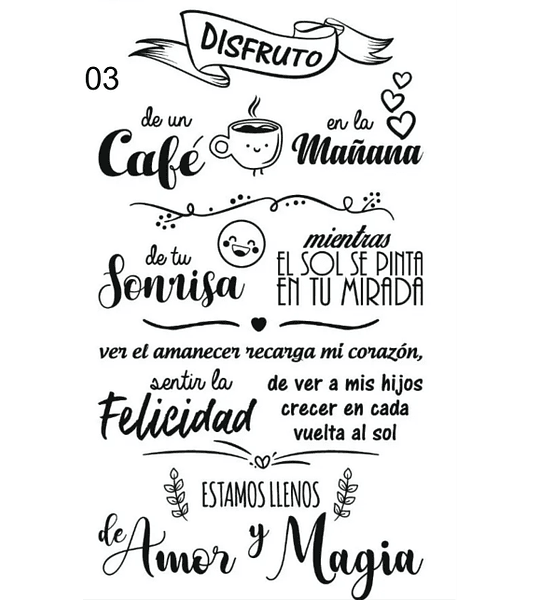 DISFRUTO
03
de un
Café
en la
Mañana
de tu
Sonrisa
mientras
EL SOL SE PINTA
EN TU MIRADA
ver el amanecer recarga mi corazón,
sentir la
Felicidad
de ver a mis hijos
crecer en cada
vuelta al sol
ESTAMOS LLENOS
de Amor y Magia